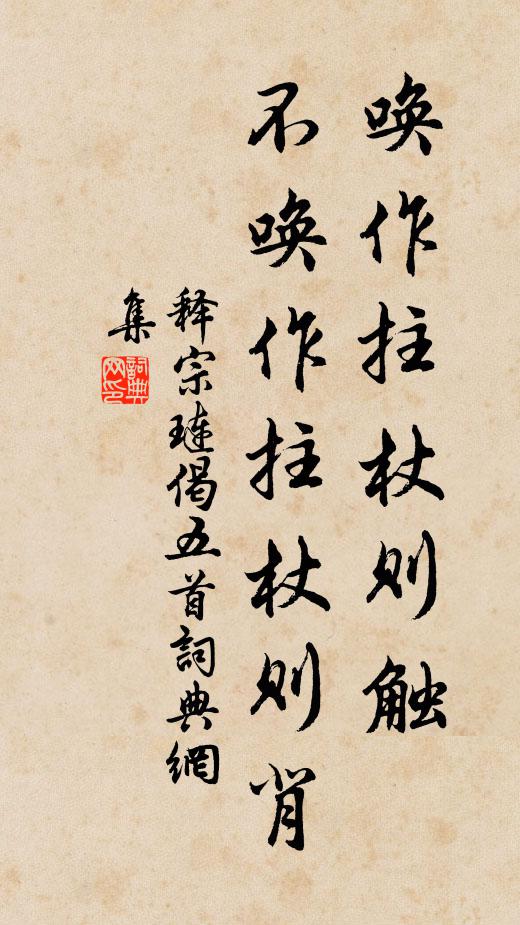 唤作拄杖则触
不唤作拄杖则背
释宗璉偈五首詞典網
集
詞典
网印